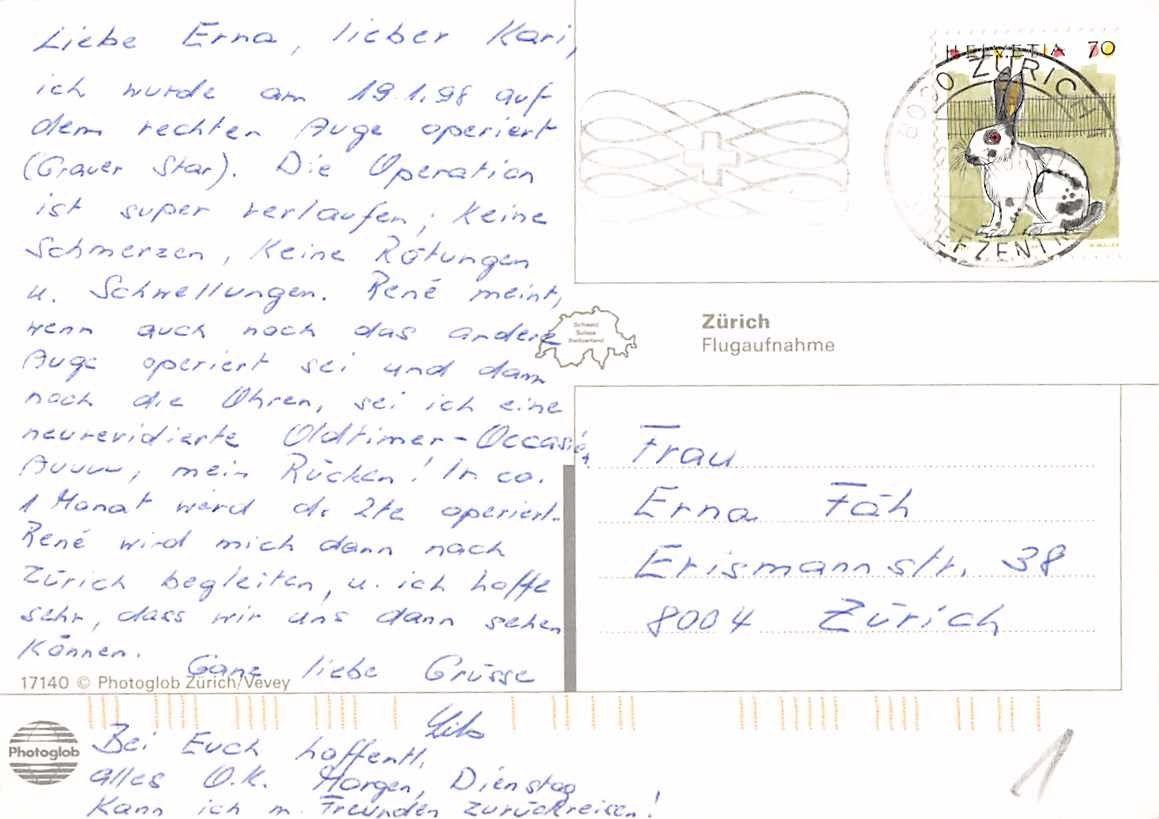 Liebe Erna, lieber Kari,
ich wurde am 19.1.98 auf
dem rechten Auge operiert
(Grauer Star). Die Operation
ist super verlaufen; Keine
Schmerzen, Keine Rötungen
u. Schwellungen. René meint,
wenn auch noch das andere
Auge operiert sei und dann
noch die Ohren, sei ich eine
neurevidierte Oldtimer-Occasion
Auuuu, mein Rücken! In ca.
1 Monat wird d. 2te operiert.
René wird mich dann nach
Zürich begleiten, u. ich hoffe
sehr, dass wir uns dann sehen
Können.
Ganz liebe Grüsse
Bei Euch hoffentl.
alles O.K. Morgen, Dienstag
Kann ich m. Freunden zurückreisen!
17140 © Photoglob Zürich/Vevey
Photoglob
HELVETIA 70
8000 ZÜRICH
Schweiz
Suisse
Switzerland
Zürich
Flugaufnahme
Frau
Erna Fäh
Erismannstr. 38
8004 Zürich
1